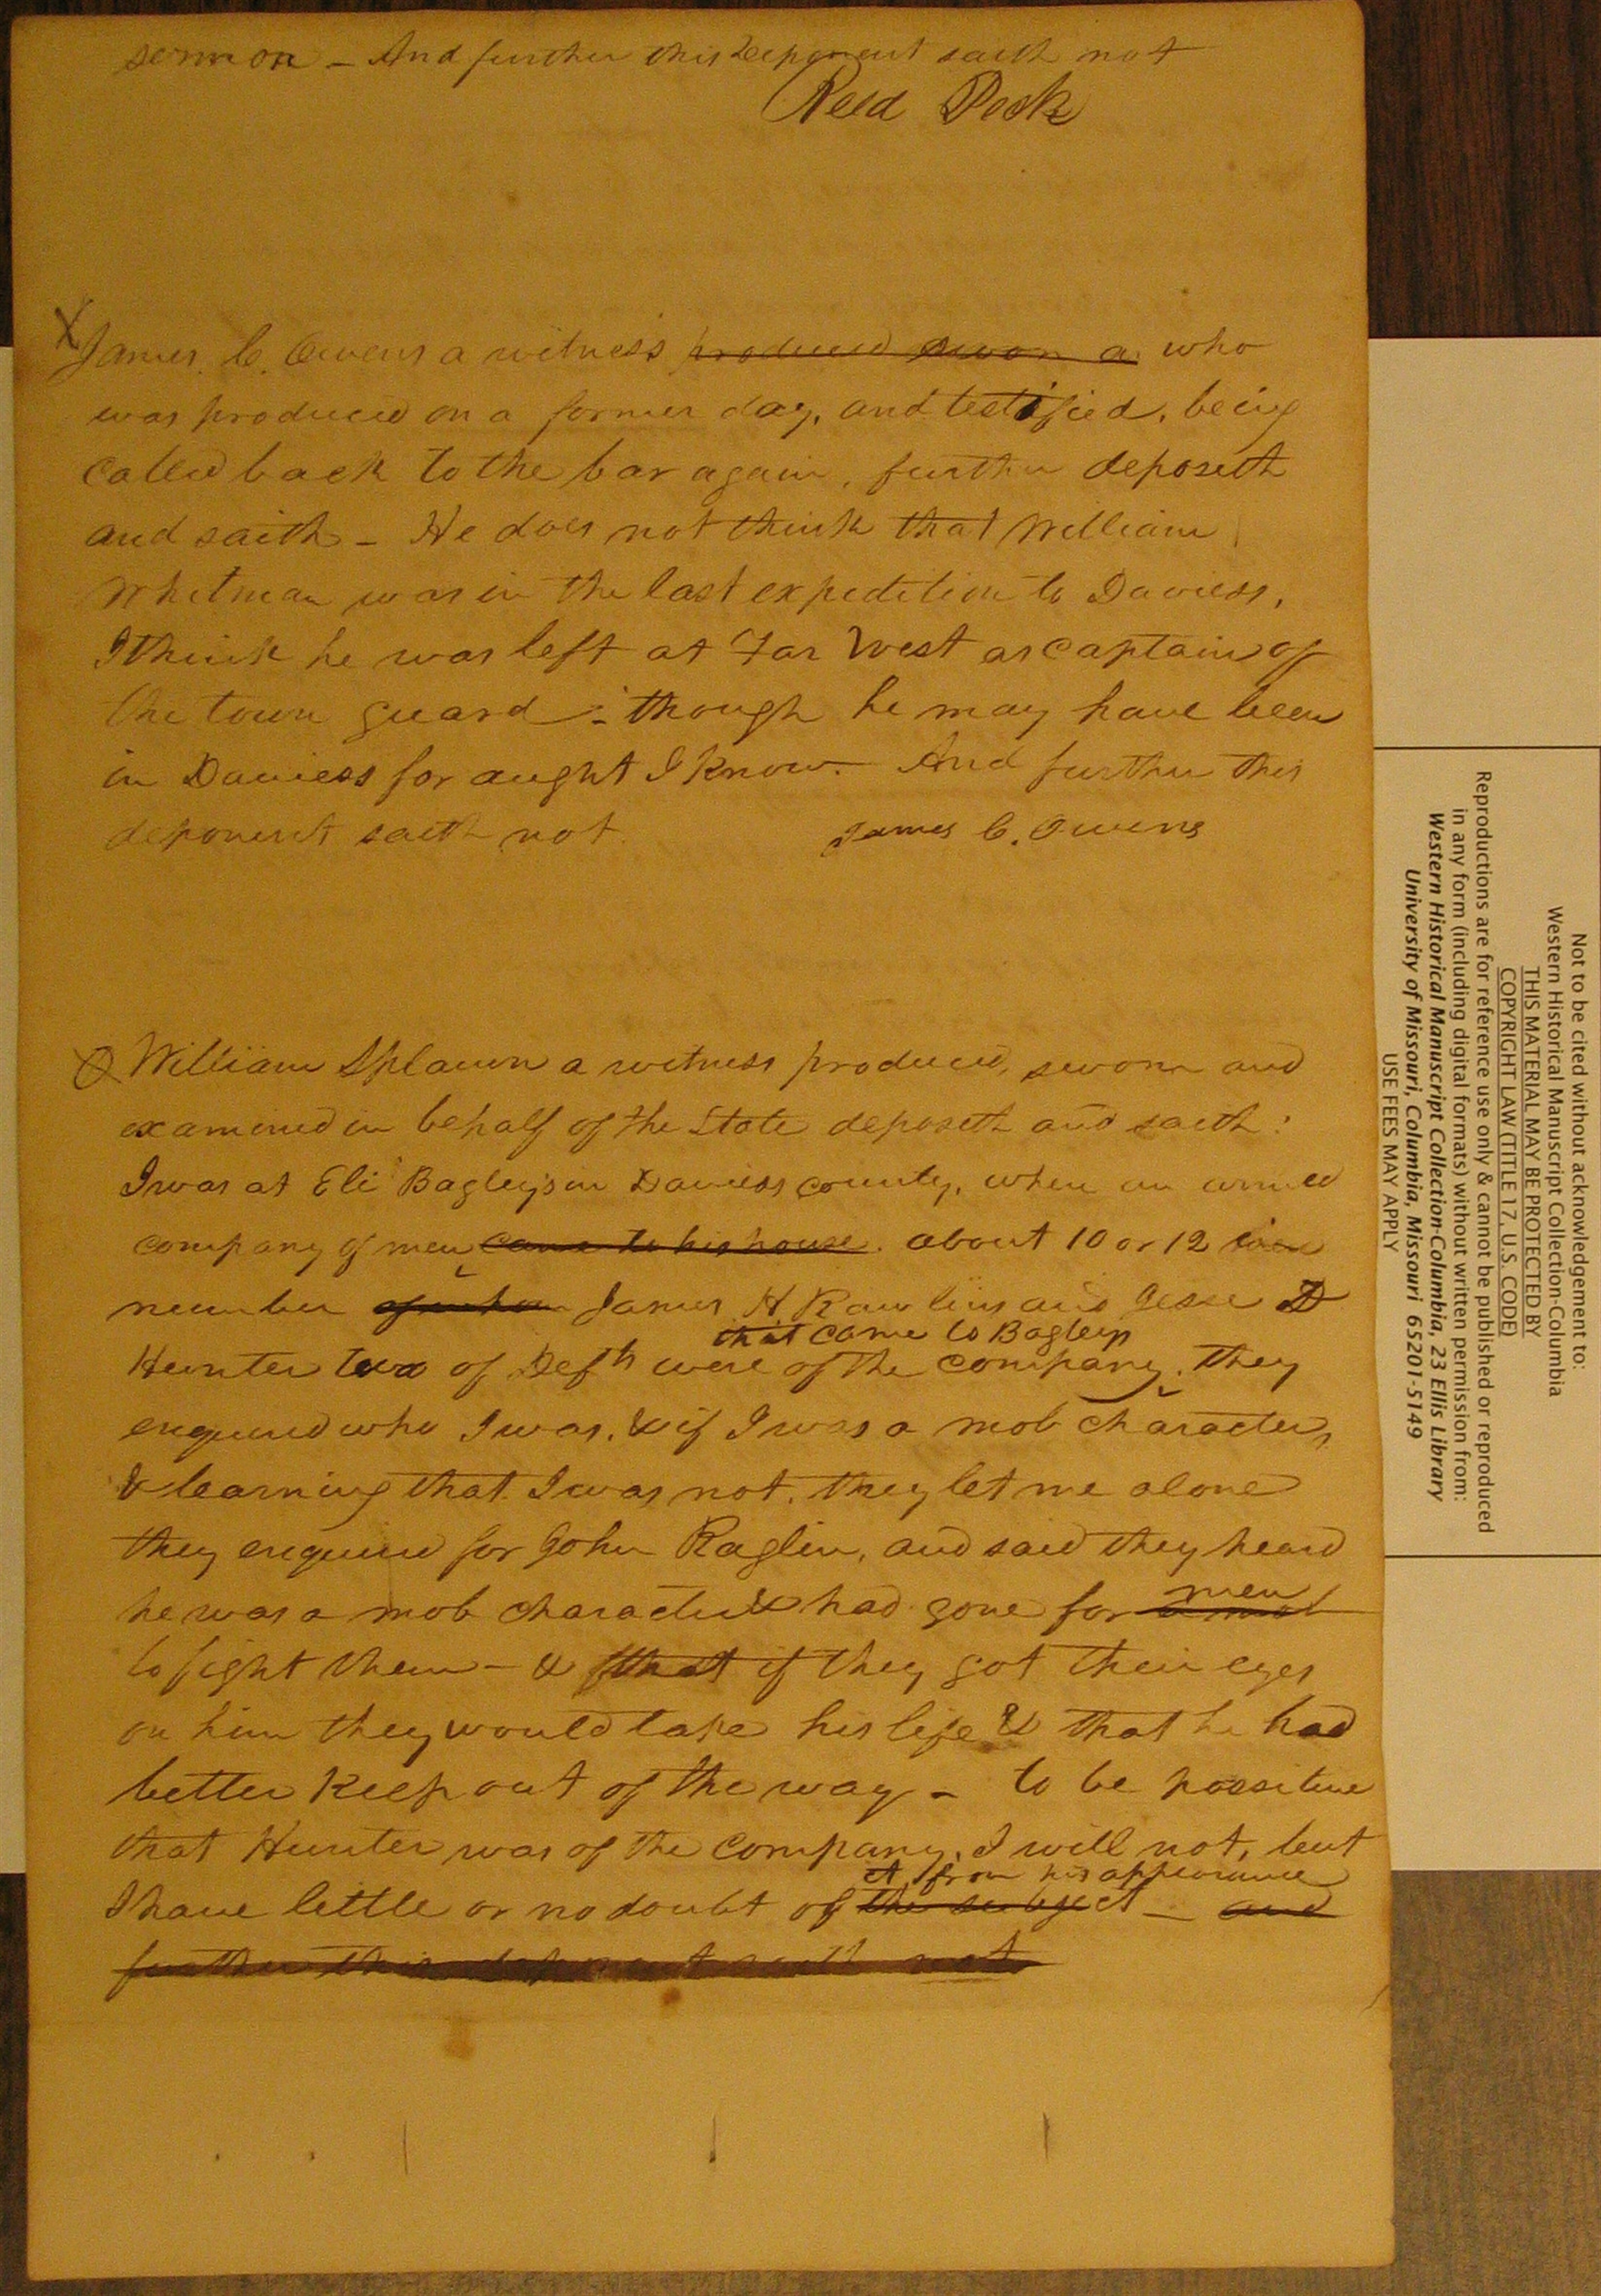 sermon - And further this deponent saith not
Reed Peck
X James C. Owens a witness produced sworn a who
was produced on a former day, and testified, being
called back to the bar again, further deposeth
and saith - He does not think that William
Whitman was in the last expedition to Daviess,
I think he was left at Far West as captain of
the town guard - though he may have been
in Daviess for aught I know - And further this
deponent saith not.
James C. Owens
William Splawn a witness produced, sworn and
examined in behalf of the State deposeth and saith:
I was at Eli Bagley's in Daviess county, when an armed
company of men came to his house. about 10 or 12 in
number of whom James H Rawlins and Jesse D
that came to Bagleys
Hunter two of Defts were of the company. They
enquired who I was, & if I was a mob character,
& learning that I was not, they let me alone
they enquired for John Raglin, and said they heard
he was a mob character & had gone for a mob
men
to fight them - & that if they got their eyes
on him they would take his life & that he had
better keep out of the way - to be possitive
that Hunter was of the company, I will not, but
it from his appearance
I have little or no doubt of the subject - and
further this deponent saith not
Not to be cited without acknowledgement to:
Western Historical Manuscript Collection-Columbia
THIS MATERIAL MAY BE PROTECTED BY
COPYRIGHT LAW (TITLE 17, U.S. CODE)
Reproductions are for reference use only & cannot be published or reproduced
in any form (including digital formats) without written permission from:
Western Historical Manuscript Collection-Columbia, 23 Ellis Library
University of Missouri, Columbia, Missouri 65201-5149
USE FEES MAY APPLY